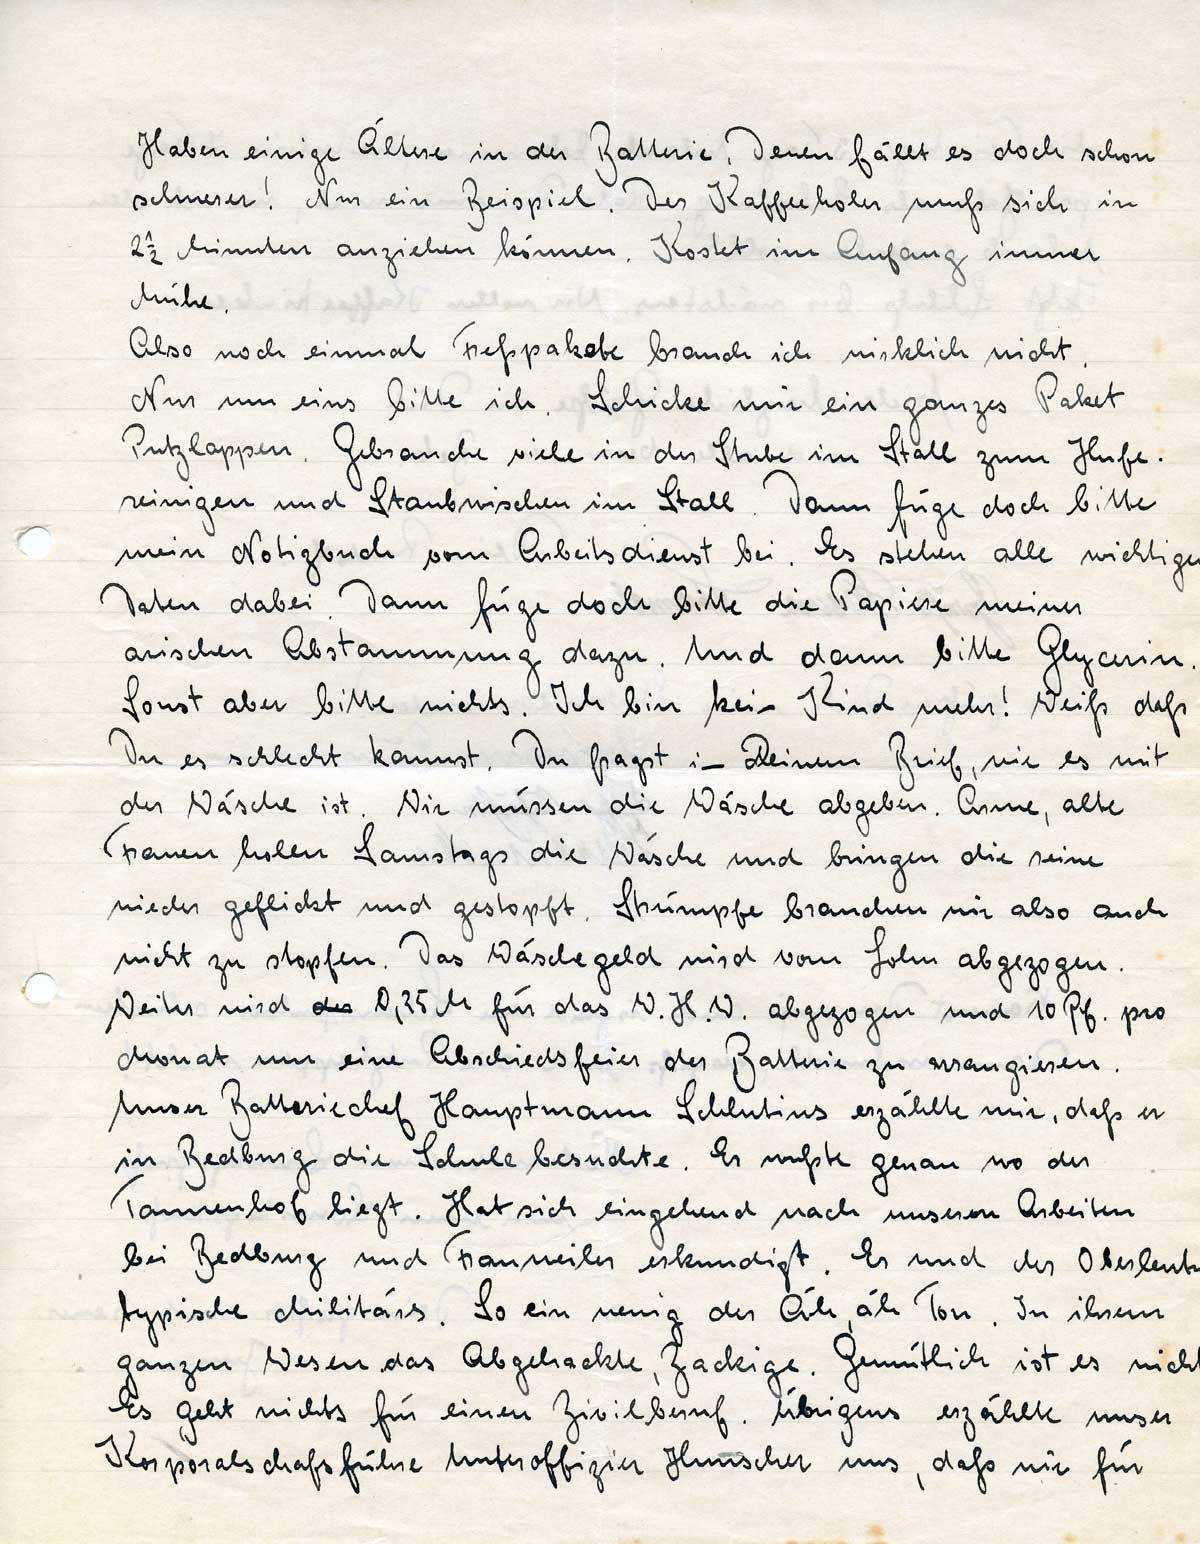 Haben einige Ältere in der Batterie. Denen fällt es doch schon
schwerer! Nur ein Beispiel. Der Kaffeeholer muß sich in
2½ Minuten anziehen können. Kostet im Anfang immer
Mühe.
Also noch einmal Freßpakete brauch ich wirklich nicht.
Nur um eins bitte ich. Schicke mir ein ganzes Paket
Putzlappen. Gebrauche viele in der Stube im Stall zum Hufe-
reinigen und Staubwischen im Stall. Dann füge doch bitte
mein Notizbuch vom Arbeitsdienst bei. Es stehen alle wichtigen
Daten dabei. Dann füge doch bitte die Papiere meiner
arischen Abstammung dazu. Und dann bitte Glycerin.
Sonst aber bitte nichts. Ich bin kein Kind mehr! Weiß daß
Du es schlecht kannst. Du fragst in Deinem Brief, wie es mit
der Wäsche ist. Wir müssen die Wäsche abgeben. Arme, alte
Frauen holen Samstags die Wäsche und bringen die reine
wieder geflickt und gestopft. Strümpfe brauchen wir also auch
nicht zu stopfen. Das Wäschegeld wird vom Sohn abgezogen.
Weiter wird der 0,25 M für das W.H.W. abgezogen und 10 Pf. pro
Monat um eine Abschiedsfeier der Batterie zu arrangieren.
Unser Batteriechef Hauptmann Schlutius erzählte mir, daß er
in Bedburg die Schule besuchte. Er wußte genau wo der
Tannenhof liegt. Hat sich eingehend nach unseren Arbeiten
bei Bedburg und Frauweiler erkundigt. Er und der Oberleutn
typische Militärs. So ein wenig der Äh, äh Ton. In ihrem
ganzen Wesen das Abgehackte, Zackige. Gemütlich ist es nicht
Es geht nichts für einen Zivilberuf. Übrigens erzählte unser
Korporalschafsführe Unteroffizier Hunscher uns, daß wir für